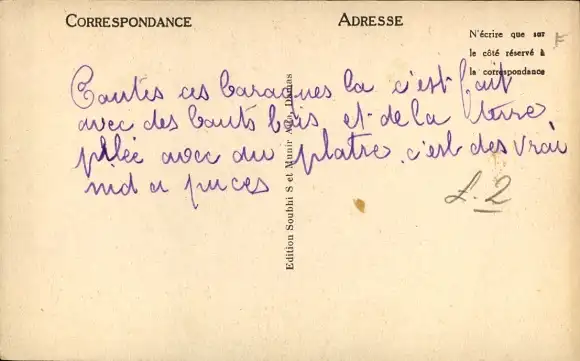 CORRESPONDANCE
ADRESSE
N'écrire que sur
le côté réservé à
la correspondance
Toutes ces baraques la c'est fait
avec des bouts bois et de la terre
pilée avec du platre. c'est des vrai
nid a puces
£.2
Edition Soubhi S et Munir Aïta, Damas